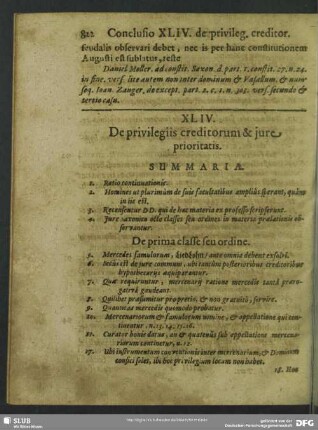 822 Conclusio XLIV. de privileg. creditor.
feudalis observari debet, nec is per hanc constitutionem
Augusti est sublatus, teste
Daniel Moller. ad constit. Saxon. d. part. 1. constit. 27. n. 24.
in fine, vers. lite autem non inter dominum & Vasallum, & num-
seq. Ioan. Zanger. de except. part. 2. c. 1. n. 302. vers. secundo &
tertio casu.
XLIV.
De privilegiis creditorum & jure
prioritatis.
SUMMARIA.
1. Ratio continuationis.
2. Homines ut plurimùm de suis facultatibus ampliùs sperant, quàm
in iis est.
3. Recensentur DD. qui de hac materia ex professo scripserunt.
4. Jure saxonico octo classes seu ordines in materia praelationis ob-
servantur.
De prima classe seu ordine.
5. Mercedes famulorum, Liedlohn/ ante omnia debent exsolvi.
6. de jure communi, ubi tantùm posterioribus creditoribus
hypothecariis aequiparantur.
7. Quae requirantur, mercenarii ratione mercedis tacitâ praero-
gativâ gaudeant.
8. Quilibet praesumitur pro pretio, & non gratuitò, servire.
9. Quantitas mercedis quomodo probetur.
10. Mercenariorum & famulorum nomine, & appellatione qui con-
tineantur. n. 13. 14. 15. 16.
11. Curator bonis datus, an & quatenus sub appellatione mercena-
riorum contineatur, n. 12.
17. Ubi instrumentum conventionis inter mercenarium, & Dominum
confici solet, ibi hoc privilegium locum non habet.
18. Non
SLUB
Wir führen Wissen.
gefördert von der
Deutschen Forschungsgemeinschaft
DFG